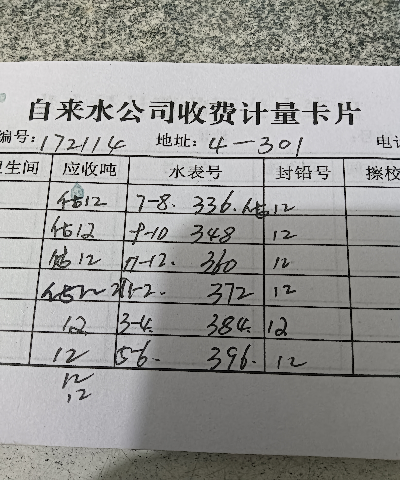 自来水公司收费计量卡片
编号:172114 地址:4-301 电话
卫生间 应收吨 水表号 封铅号 擦校
估12 7-8. 336. 估12
估12 9-10 348 12
估12 11-12. 360 12
估12 1-2. 372 12
12 3-4. 384. 12
12 5-6. 396. 12
12
12